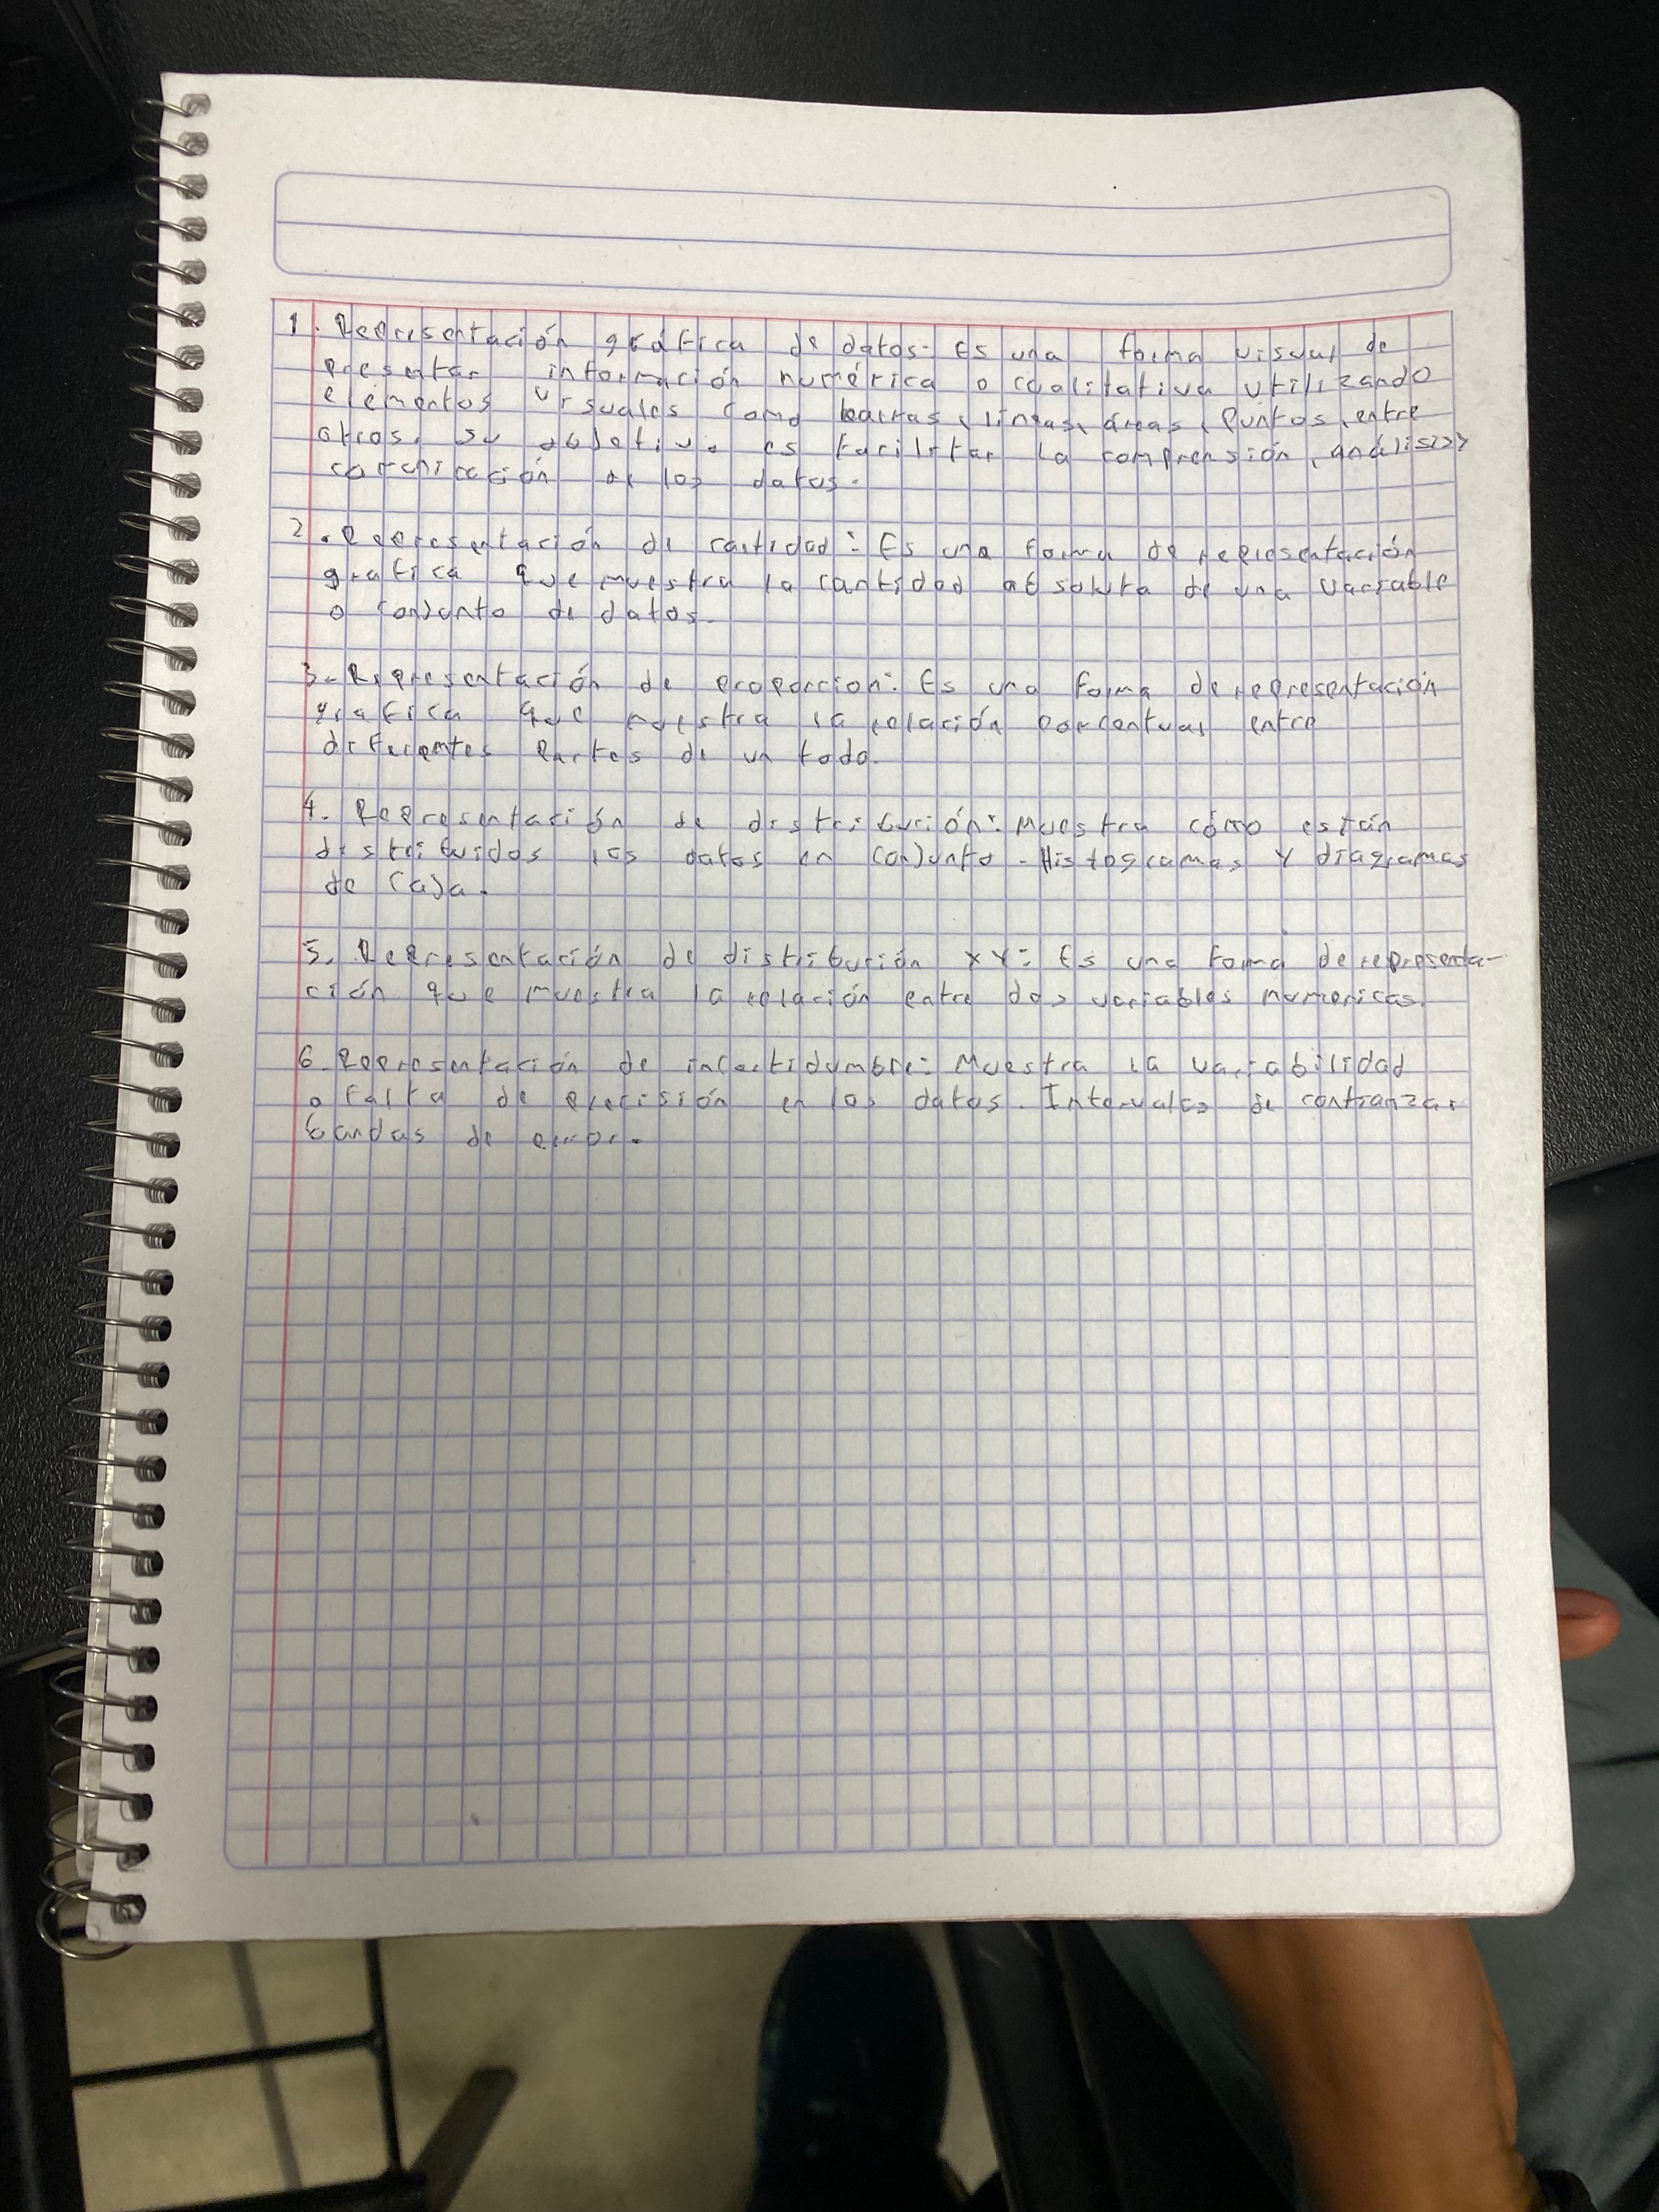 1. Representación gráfica de datos: Es una forma visual de
presentar información numérica o cualitativa utilizando
elementos visuales como barras, líneas, áreas, puntos, entre
otros. Su objetivo es facilitar la comprensión, análisis y
comunicación de los datos.
2. Representación de cantidad: Es una forma de representación
grafica que muestra la cantidad absoluta de una variable
o conjunto de datos.
3. Representación de proporcion: Es una forma de representación
grafica que muestra la relación porcentual entre
diferentes partes de un todo.
4. Representación de distribución: Muestra cómo están
distribuidos los datos en conjunto. Histogramas y diagramas
de caja.
5. Representación de distribución XY: Es una forma de representa-
ción que muestra la relación entre dos variables numericas.
6. Representación de incertidumbre: Muestra la variabilidad
o falta de precisión en los datos. Intervalos de confianza,
bandas de error.